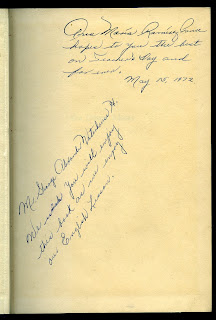 Ana María Ramírez
hopes to you the best
on Teacher's Day and
for ever.
May 15, 1972
Mr. George
We wish you will enjoy
this book as we enjoy
our English Lesson.